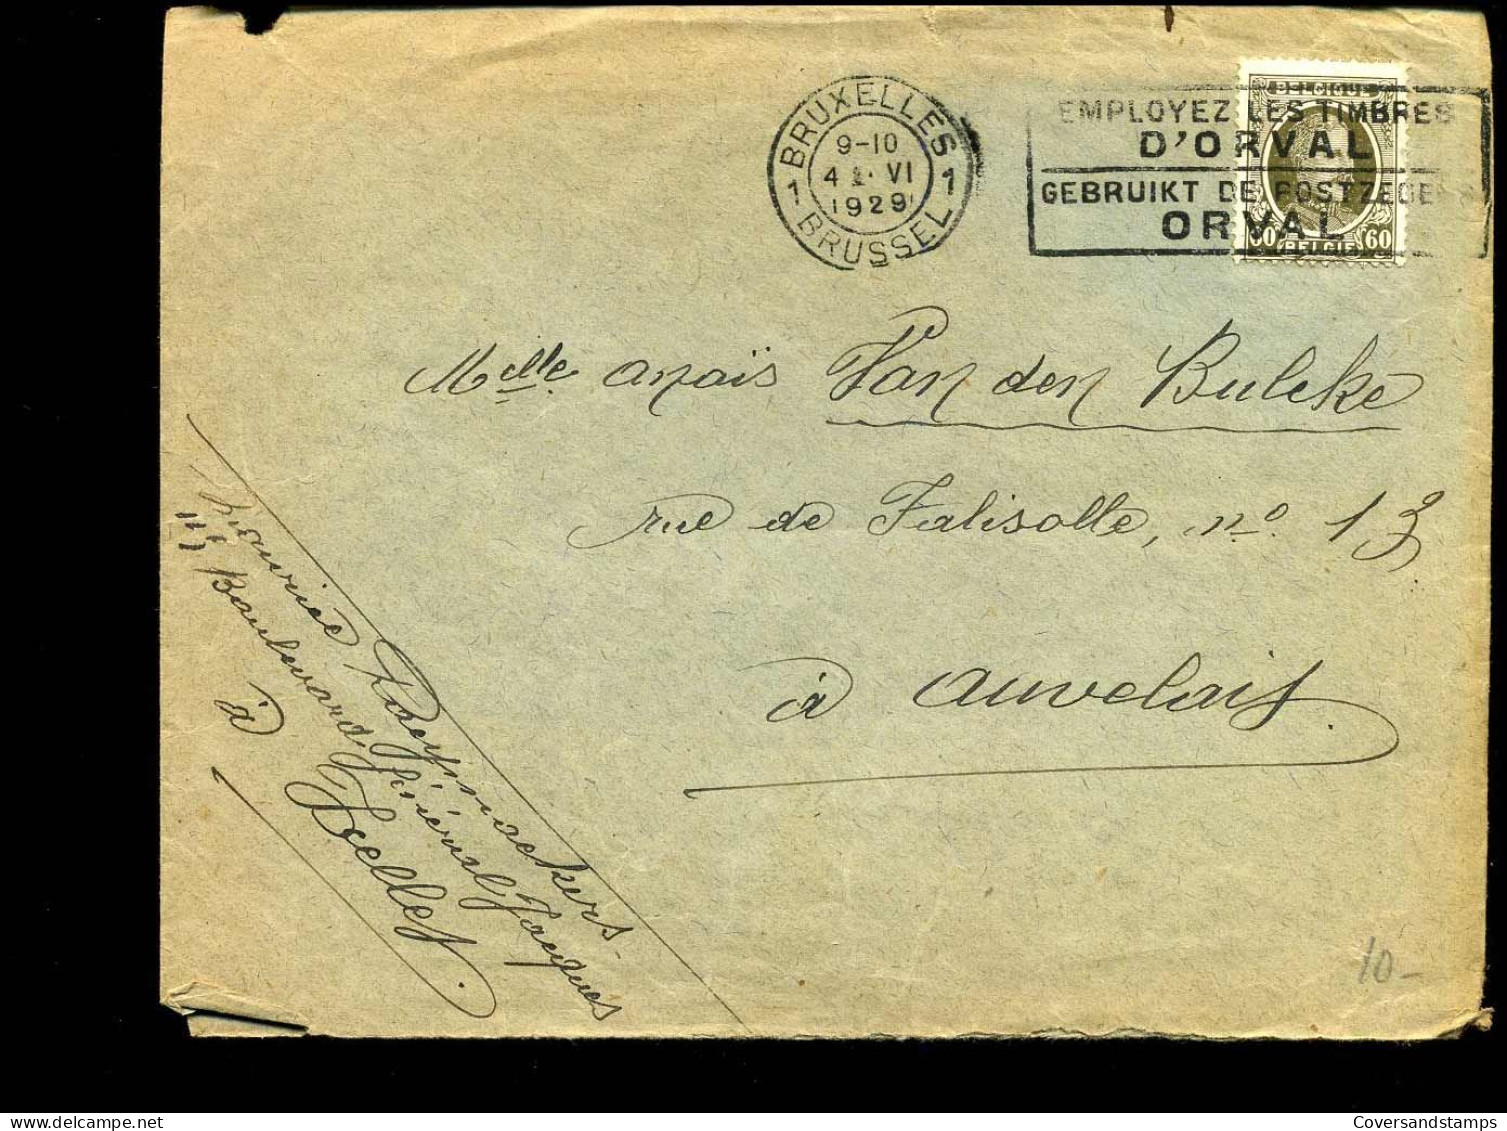 BRUXELLES
9-10
4 VI
1929
1 1
BRUSSEL
EMPLOYEZ LES TIMBRES
D'ORVAL
GEBRUIKT DE POSTZEGELS
ORVAL
BELGIQUE
60 BELGIE 60
Melle. anaïs Van den Bulcke
rue de Falisolle, no. 13
à auvelais.
Maurice Raeymaekers-
Boulevard Général Jacques
à Ixelles.
10-
Coversandstamps